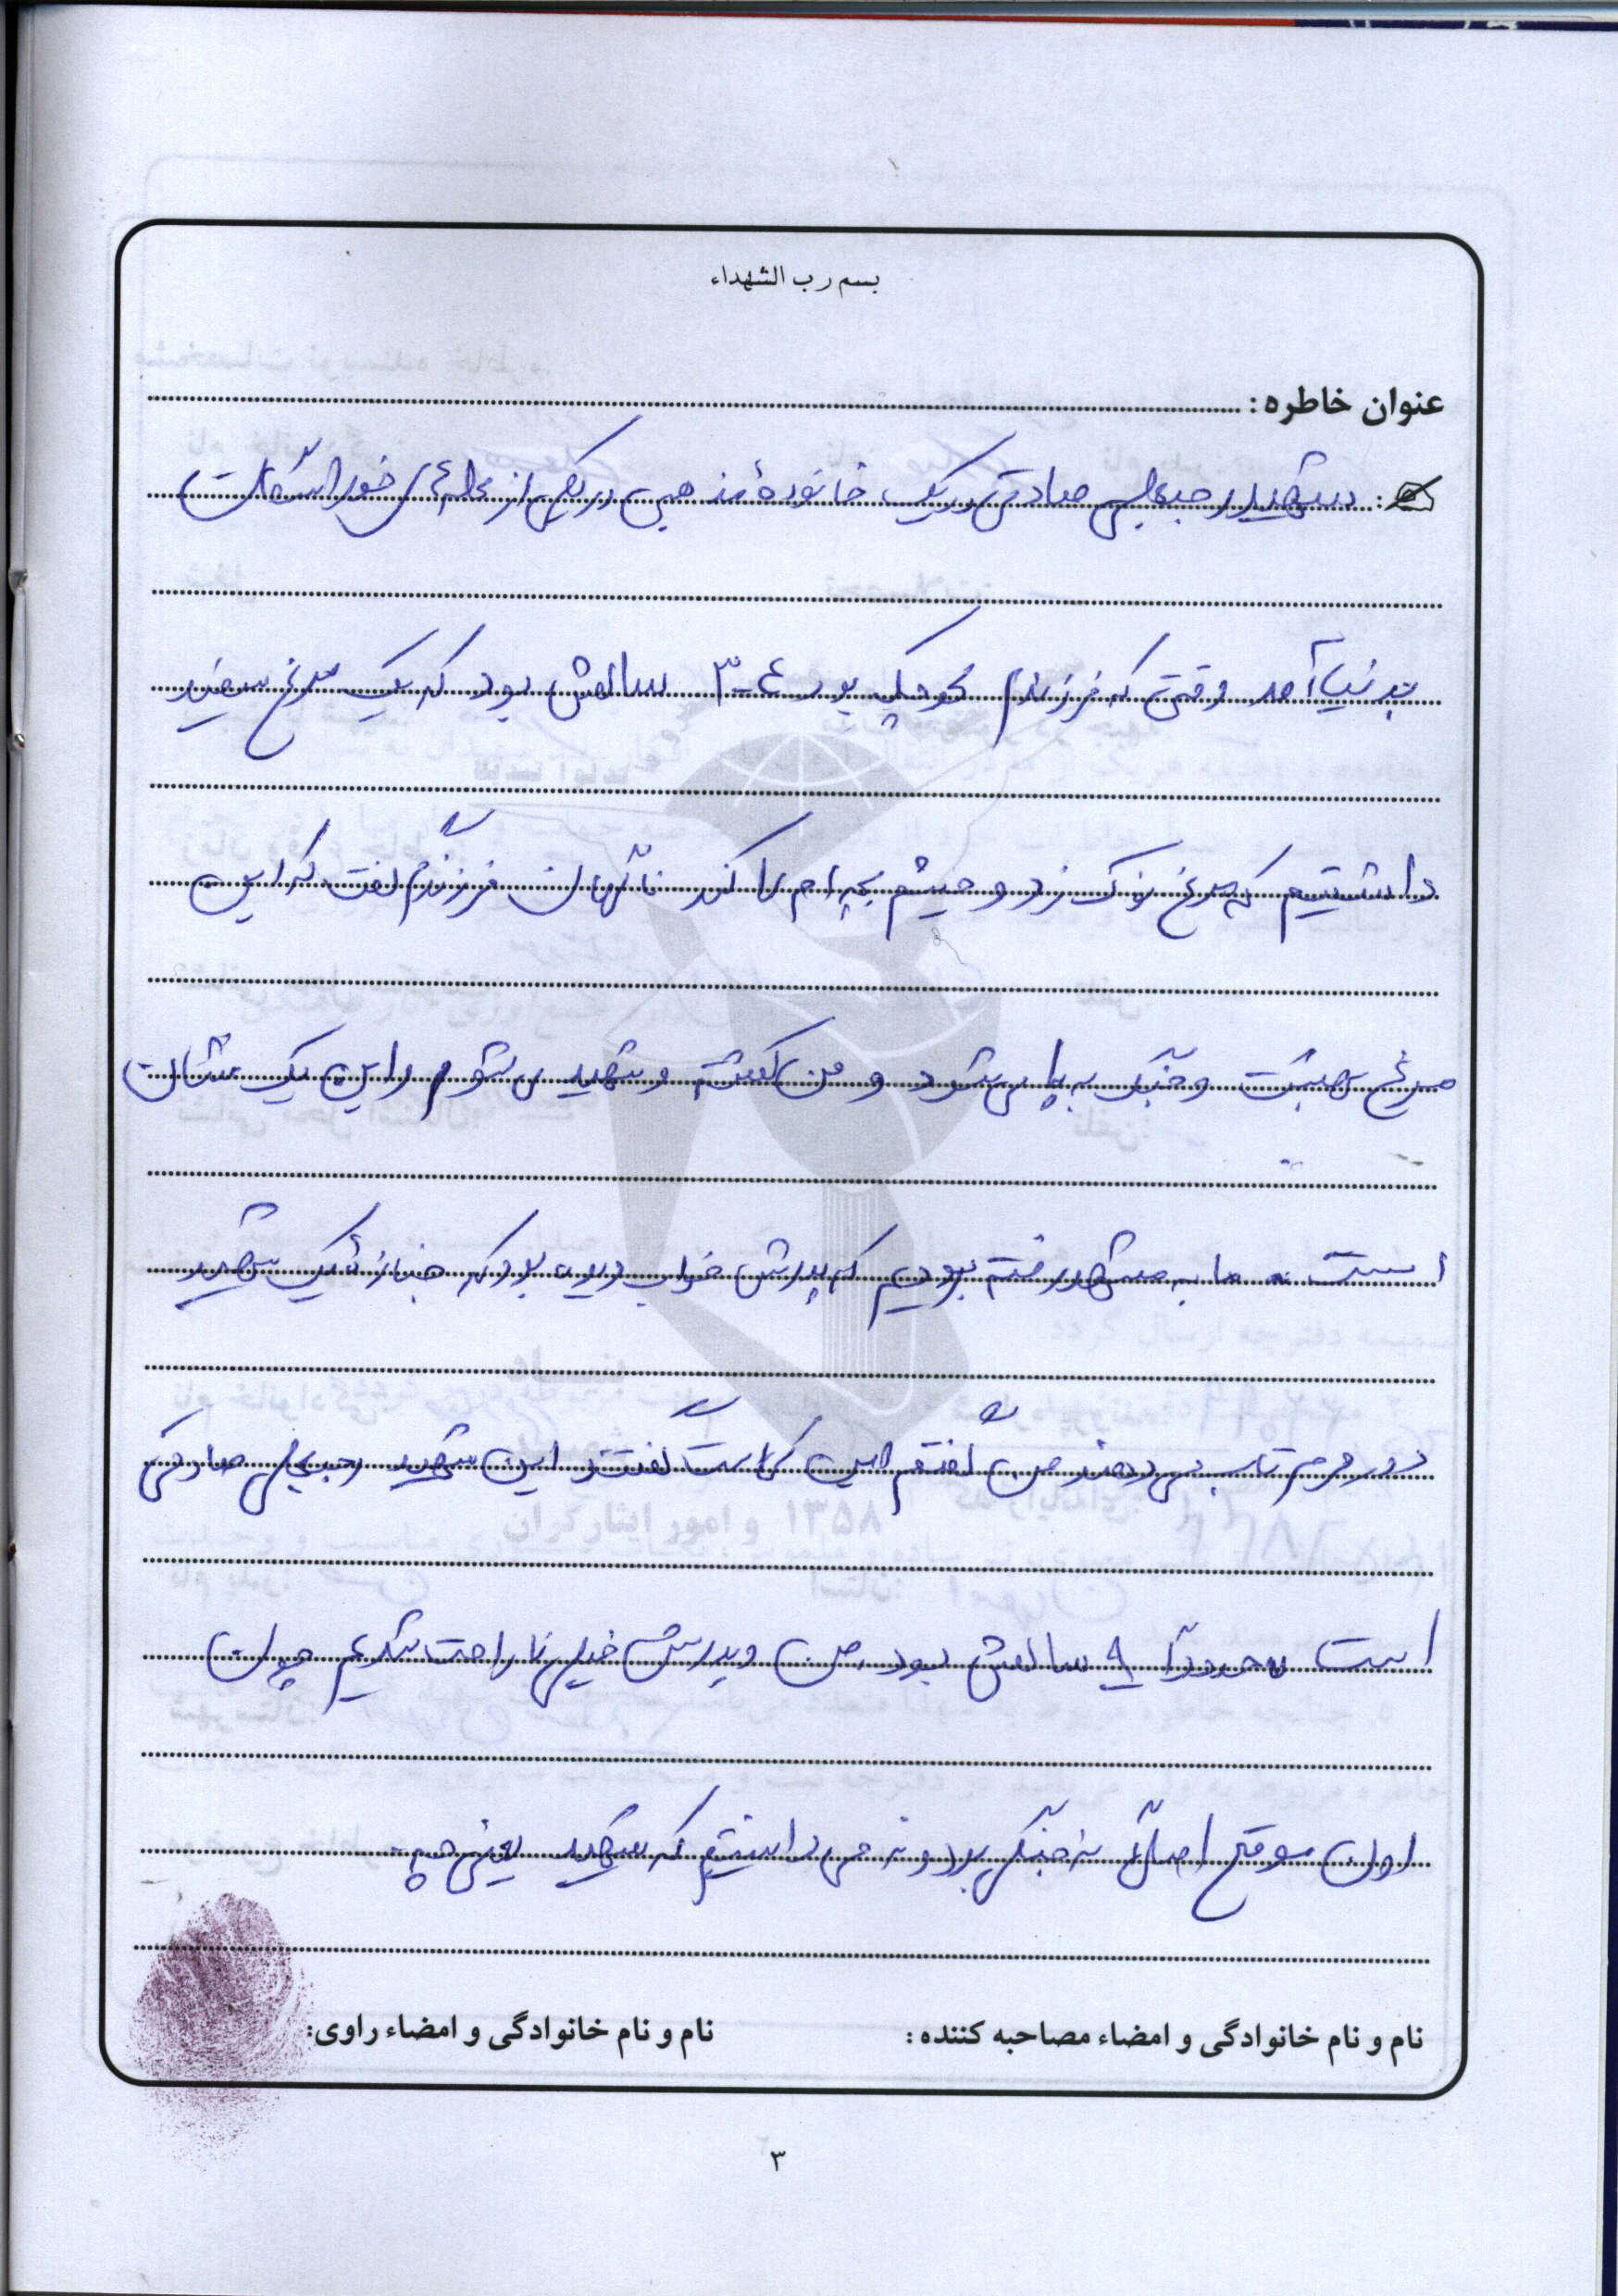 بسم رب الشهداء
عنوان خاطره:
شهید رجبعلی صادقی در یک خانوده مذهبی در یکی از محله های خوراسگان
بدنیا آمد وقتی که فرزندم کوچک بود ۴-۳ سالش بود که یک مرغ سفید
داشتیم که مرغ نوک زد و چشم بچه ام را کند ناگهان فرزندم گفت که این
مرغ بهشت و جنگ به پا می شود و من کشته و شهید می شوم و این یک نشان
است ما به مشهد رفته بودیم که پدرش خواب دیده بود که جنازه یک شهید
دور حرم تاب می دهند من گفتم این کیست گفتند این شهید رجبعلی صادقی
است حدوداً ۹ سالش بود من و پدرش خیلی ناراحت شدیم چون
اون موقع اصلاً نه جنگی بود و نه می دانستیم که شهید یعنی چه
نام و نام خانوادگی و امضاء مصاحبه کننده: نام و نام خانوادگی و امضاء راوی:
۳